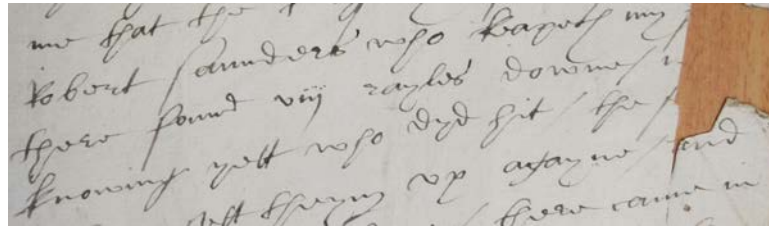 me that the
Robert Saunders who keapeth my
there found viij rayles downe
knowing yett who dyd hit / the
sett theym vp agayne and
there came in